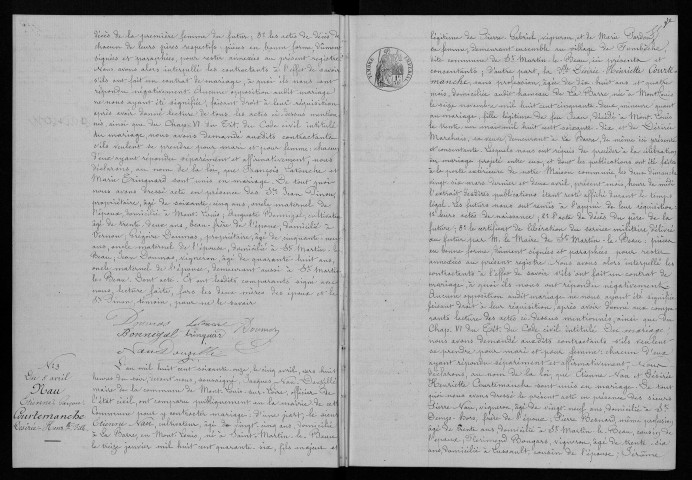 décès de la première femme du futur, 3° les actes de décès de
chacun de leurs pères respectifs, pièces en bonne forme, dûment
signées et paraphées, pour rester annexées au présent registre
Nous avons alors interpellé les contractants à l'effet de savoir
s'ils ont fait un contrat de mariage, à quoi ils nous ont
répondu négativement. Aucune opposition audit mariage
ne nous ayant été signifiée, faisant droit à leur réquisition
après avoir donné lecture de tous les actes ci-dessus mention-
nés, ainsi que du Chap. VI du Tit. du Code civil intitulé
Du mariage, nous avons demandé auxdits contractants
s'ils veulent se prendre pour mari et pour femme : chacun
d'eux ayant répondu séparément et affirmativement, nous
déclarons, au nom de la loi, que François et
Marie sont unis en mariage. De tout quoi
nous avons dressé acte en présence des Srs Jean
propriétaire, âgé de soixante-cinq ans, oncle maternel de
l'épouse, domicilié à Mont-Louis, Auguste Bonnigal, cultivateur
âgé de trente-deux ans, beau-frère de l'épouse, domicilié à
Vernou, Grégoire, propriétaire, âgé de cinquante
ans, oncle maternel de l'épouse, domicilié à St Martin-le-
Beau, Jean, vigneron, âgé de quarante-huit ans,
oncle maternel de l'épouse, demeurant aussi à St Martin-
le-Beau. Dont acte. Et ont lesdits comparants signé avec
nous, lecture faite, fors les deux mères des époux et le
Sr témoin, pour ne le savoir
Bonnigal
N° 3
Du 5 avril
Nau
Etienne
et
Courtemanche
Désirée Henrte
L'an mil huit cent soixante-onze, le cinq avril, cinq heures
du soir, devant nous, Jacques
maire de la commune de Mont-Louis-sur-Loire, officier de
l'état civil, ont comparu publiquement en la mairie de cette
Commune pour y contracter mariage : D'une part, le sieur
Etienne Nau, cultivateur, âgé de vingt-cinq ans, domicilié
à la Barre, en Mont-Louis, né à Saint-Martin-le-Beau
le seize janvier mil huit cent quarante-six, fils majeur et
légitime de Pierre Gabriel, vigneron, et de Marie
sa femme, demeurant ensemble au village de
dite commune de St Martin-le-Beau, ici présents et
consentants ; d'autre part, la Dlle Désirée Henriette Courte-
manche, sans profession, âgée de dix-huit ans
mois, domiciliée audit hameau de la Barre, née à Mont-Louis
le seize novembre mil huit cent cinquante-deux, mineure quant
au mariage, fille légitime de feu Jean, décédé à Mont-Louis
le trente-un mil huit cent soixante-dix et de Désirée
sa veuve, demeurant à la Barre, de même ici présente
et consentante. Lesquels nous ont requis de procéder à la célébration
du mariage projeté entre eux, et dont les publications ont été faites
à la porte extérieure de notre Maison commune, les deux dimanches
vingt-six mars dernier et deux avril, présent mois, heure de midi.
L'extrait desdites publications étant resté affiché durant le temps
légal. Les futurs nous ont remis à l'appui de leur réquisition :
1° leurs actes de naissance ; 2° l'acte de décès du père de la
future ; 3° le certificat de libération du service militaire délivré
au futur par M. le Maire de St Martin-le-Beau, pièces
en bonne forme, dûment signées et paraphées pour rester
annexées au présent registre. Nous avons alors interpellé les
contractants à l'effet de savoir s'ils ont fait un contrat de
mariage, à quoi ils nous ont répondu négativement
Aucune opposition audit mariage ne nous ayant été signifiée
faisant droit à leur réquisition, après avoir donné aux com-
parants lecture des actes ci-dessus mentionnés, ainsi que du
Chap. VI du Tit. du Code civil intitulé Du mariage
nous avons demandé auxdits contractants s'ils veulent
se prendre pour mari et pour femme : chacun d'eux
ayant répondu séparément et affirmativement, nous
déclarons, au nom de la loi que Etienne Nau et Désirée
Henriette Courtemanche sont unis en mariage. De tout
quoi nous avons dressé le présent acte en présence des sieurs
Pierre Nau, vigneron, âgé de vingt-neuf ans, domicilié à St
frère de l'époux, Pierre même profession,
âgé de trente ans, domicilié à St Martin-le-Beau, cousin de
l'épouse, vigneron, âgé de trente-six
ans, domicilié à Lussault, cousin de l'épouse, Jérôme